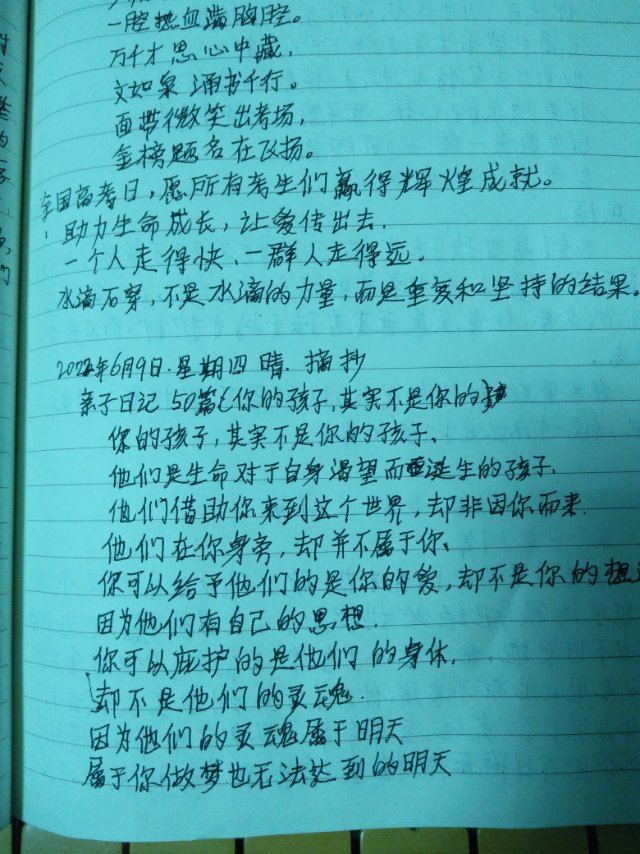 一腔热血满胸腔。
万千才思心中藏,
文如泉涌书千行。
面带微笑出考场,
金榜题名在飞扬。
全国高考日,愿所有考生们赢得辉煌成就。
助力生命成长,让爱传出去.
一个人走得快、一群人走得远。
水滴石穿,不是水滴的力量,而是重复和坚持的结果。
2022年6月9日.星期四 晴. 摘抄
亲子日记 50篇《你的孩子,其实不是你的孩
你的孩子,其实不是你的孩子、
他们是生命对于自身渴望而诞生的孩子.
他们借助你来到这个世界,却非因你而来.
他们在你身旁,却并不属于你、
你可以给予他们的是你的爱,却不是你的想
因为他们有自己的思想.
你可以庇护的是他们的身体,
却不是他们的灵魂.
因为他们的灵魂属于明天
属于你做梦也无法达到的明天